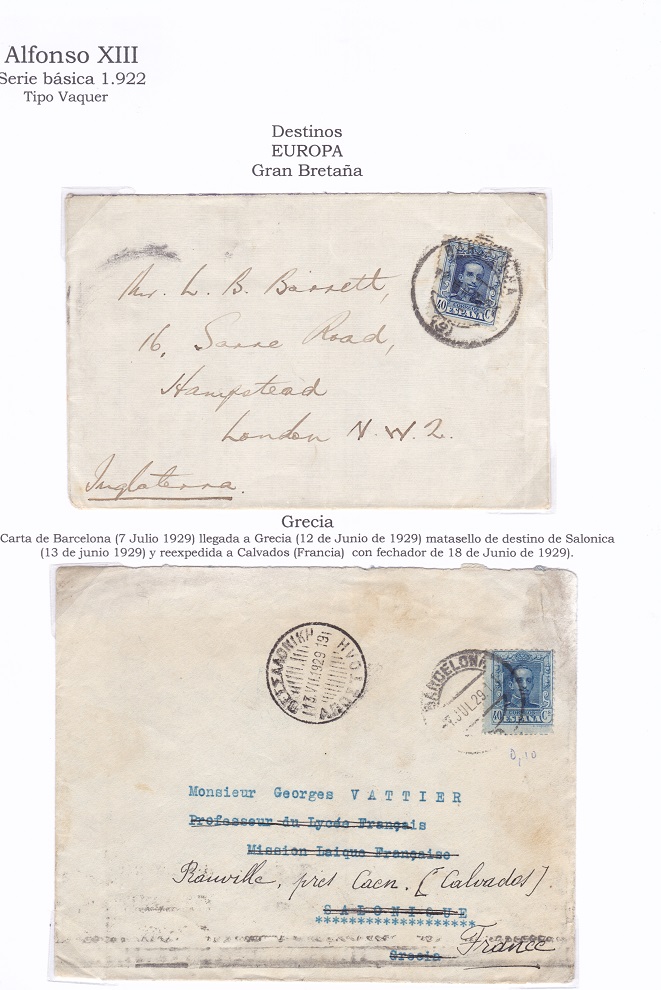 Alfonso XIII
Serie básica 1.922
Tipo Vaquer
Destinos
EUROPA
Gran Bretaña
BARCELONA
40 ESPAÑA Cs
Mr. L. B. Barrett,
16, Sarre Road,
Hampstead
London N.W.2.
Inglaterra.
Grecia
Carta de Barcelona (7 Julio 1929) llegada a Grecia (12 de Junio de 1929) matasello de destino de Salonica
(13 de junio 1929) y reexpedida a Calvados (Francia) con fechador de 18 de Junio de 1929).
ΘΕΣΣΑΛΟΝΙΚΗ
13 VII 1929 19
BARCELONA
JUL 29
40 ESPAÑA Cs
0,10
Monsieur Georges VATTIER
Professeur du Lycée Français
Mission Laique Française
près Caen. [Calvados].
SALONIQUE
********************
Grecia
France